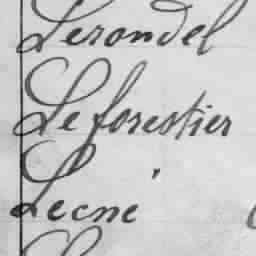 Lerondel
Le forestier
Lecne